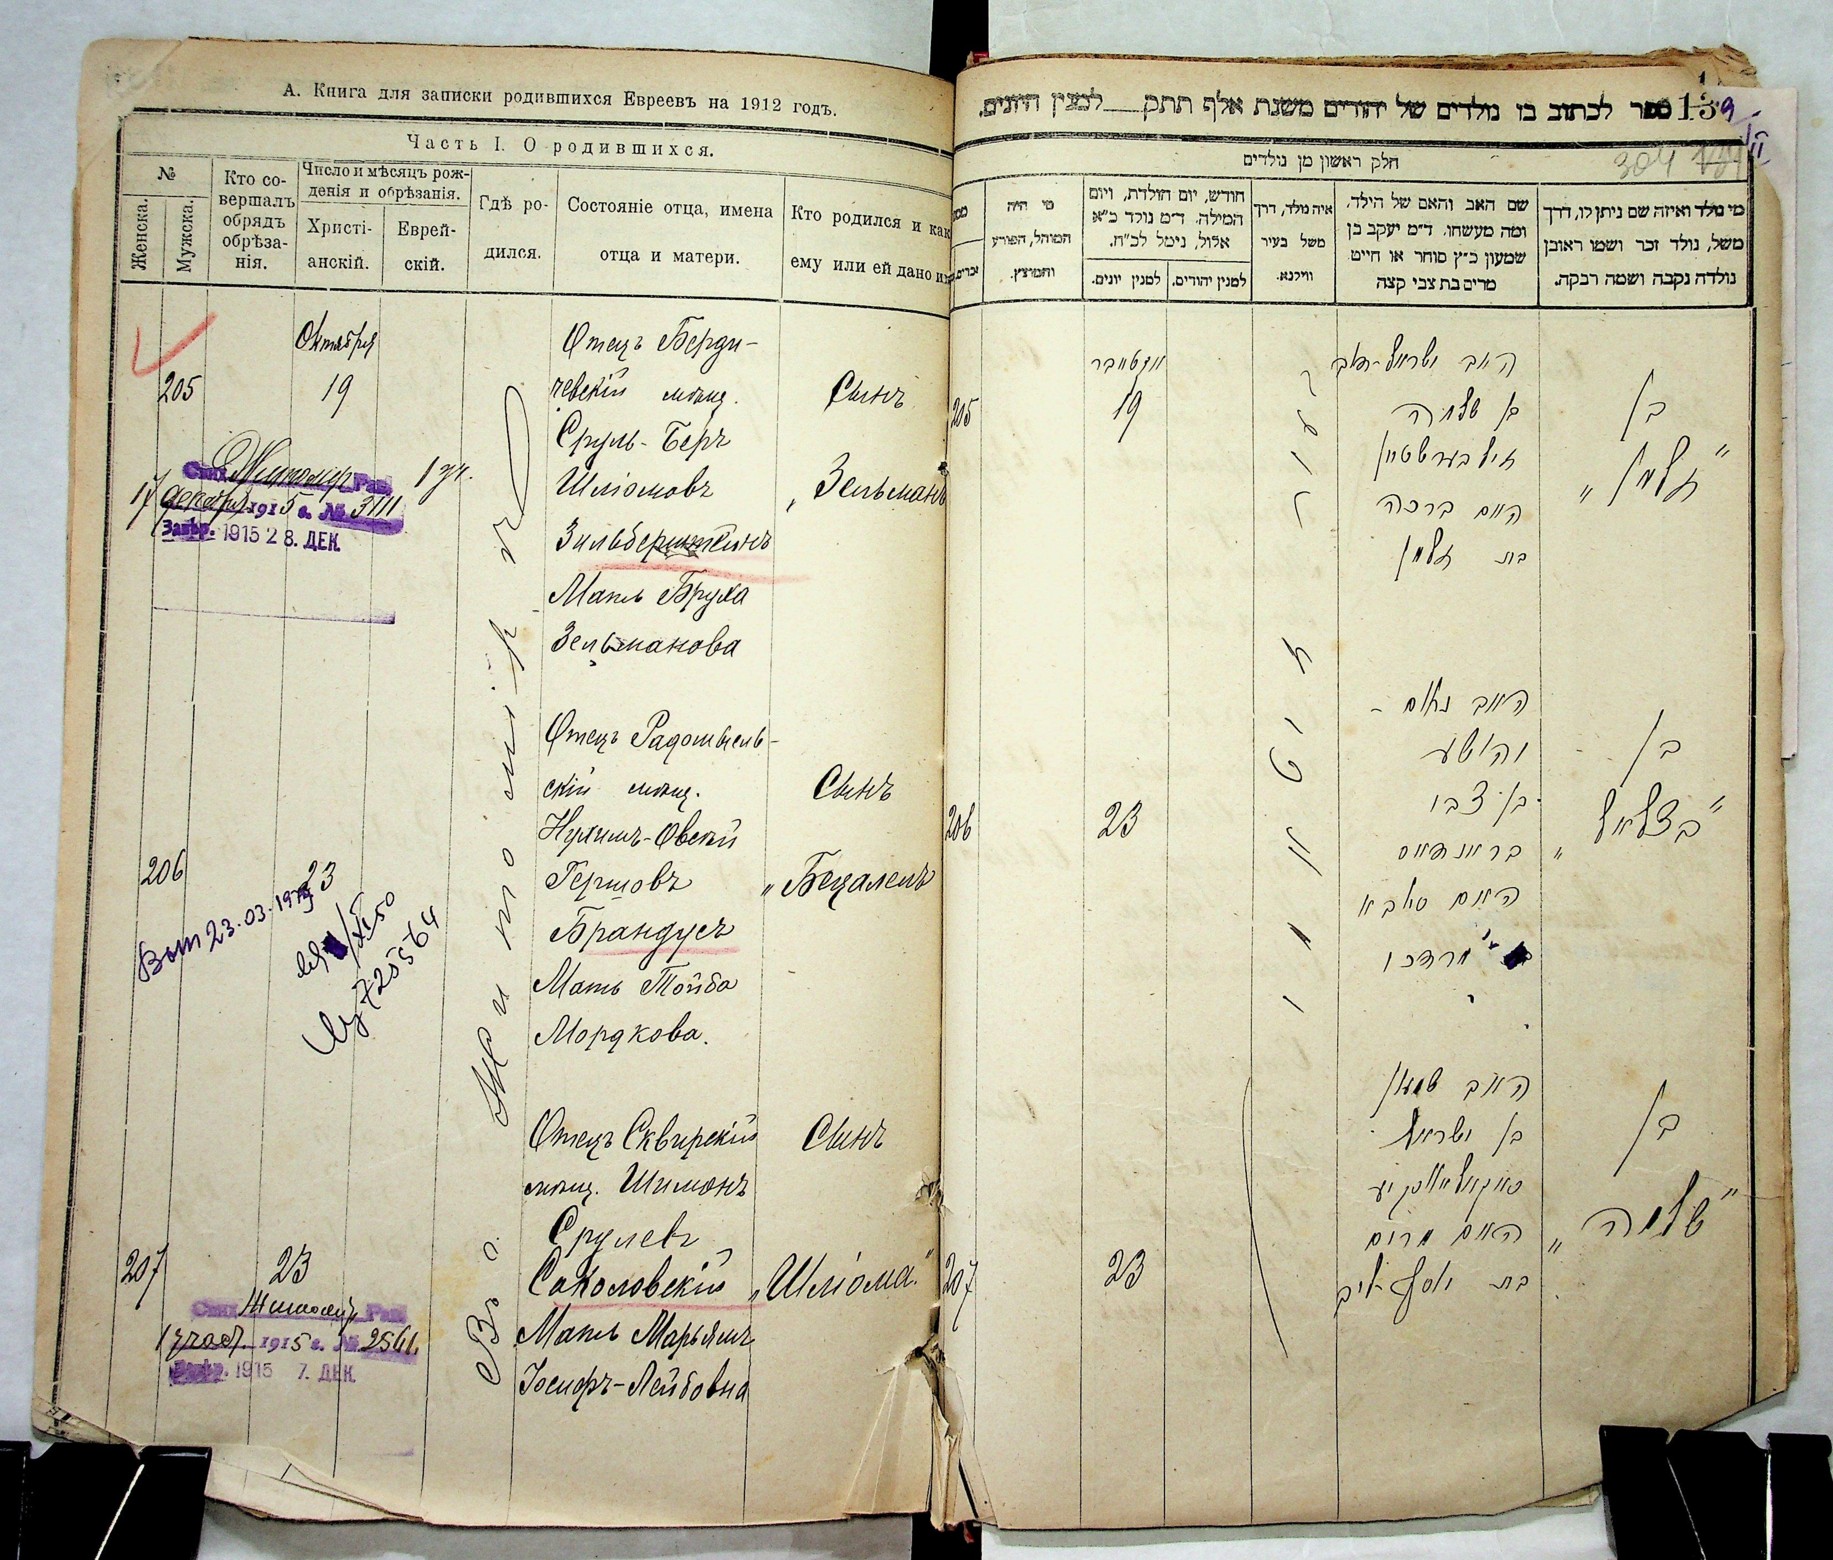 А. Книга для записки родившихся Евреевъ на 1912 годъ.
Часть I. О родившихся.
№
Женска.
Мужска.
Кто со-
вершалъ
обрядъ
обрѣза-
нія.
Число и мѣсяцъ рож-
денія и обрѣзанія.
Христі-
анскій.
Еврей-
скій.
Гдѣ ро-
дился.
Состояніе отца, имена
отца и матери.
Кто родился и как
ему или ей дано и
Октября
205
19
Отецъ Берди-
чевскій мѣщ.
Сруль-Беръ
Шліомовъ
Зильберштейнъ
Мать Бруха
Зельманова
Сынъ
„Зельманъ
Житомир
1 уч.
17 декабря 1915 г. № 3111
Завѣр. 1915 28. ДЕК.
Въ г. Житомірѣ
206
23
Отецъ Радомысль-
скій мѣщ.
Нухимъ-Овсей
Гершовъ
Брандусъ
Мать Тойба
Мордкова.
Сынъ
„Бецалель
23.03.19
725564
207
23
Отецъ Сквирскій
мѣщ. Шимонъ
Срулевъ
Соколовскій
Мать Марьямъ
Іосифъ-Лейбовна
Сынъ
„Шліома."
Житомир
1915 г. № 2561
1915 7. ДЕК.
ספר לכתוב בו נולדים של יהודים משנת אלף תתק למנין היונים.
139
304
חלק ראשון מן נולדים
מי היה
המוהל, הפורע
והמוצץ.
חודש, יום הולדת, ויום
המילה. ד״מ נולד כ״א
אלול, נימל לכ״ח.
למנין יונים.
למנין יהודים.
איה נולד, דרך
משל בעיר
ווילנא.
שם האב והאם של הילד,
ומה מעשהו. ד״מ יעקב בן
שמעון כ״ץ סוחר או חייט
מרים בת צבי קצה
מי נולד ואיזה שם ניתן לו, דרך
משל, נולד זכר ושמו ראובן
נולדה נקבה ושמה רבקה.
205
אקטאבר
19
האב ישראל-דוב
בן שלמה
זילבערשטיין
האם ברכה
בת זלמן
בן
„זלמן"
206
23
האב נחום -
יהושע
בן צבי
בראנדוס
האם טאבא
מרדכי
בן
„בצלאל"
207
23
האב שמעון
בן ישראל
סאקאלאווסקי
האם מרים
בת יוסף-ליב
בן
„שלמה"
זיטאמיר